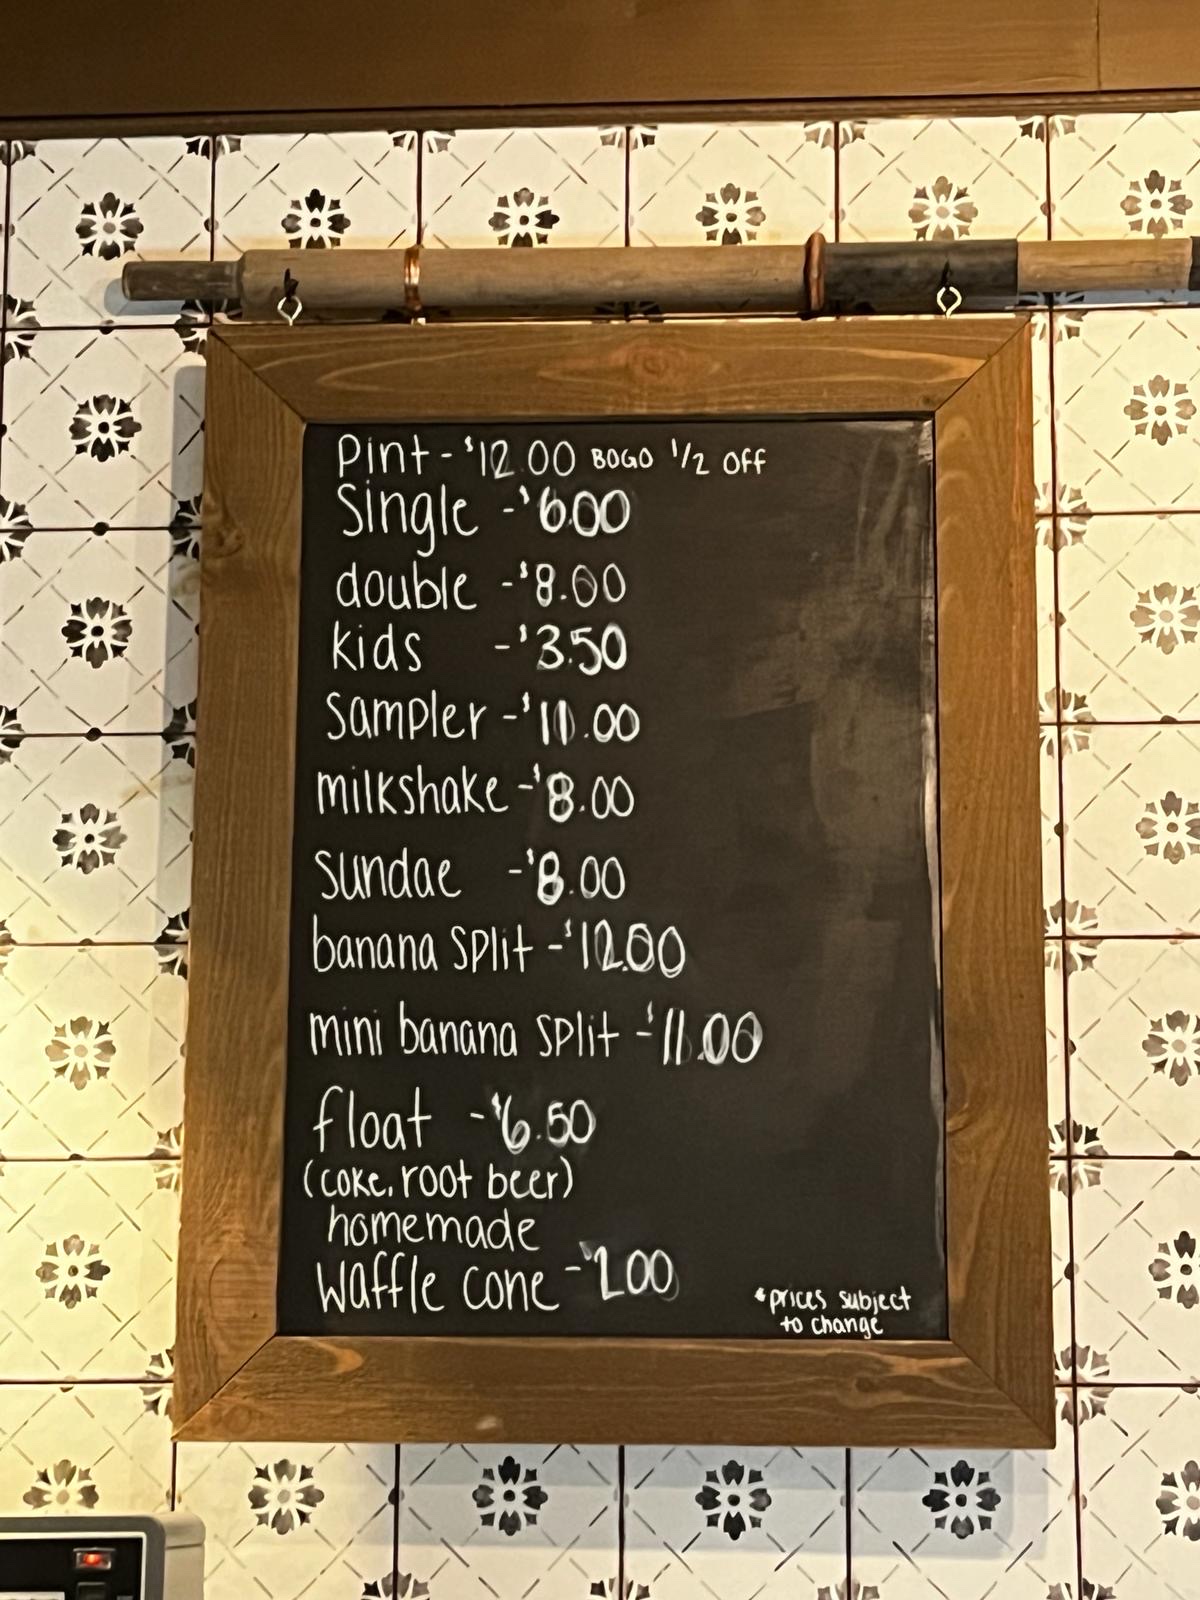 Pint - $12.00 BOGO 1/2 OFF
Single - $6.00
double - $8.00
kids - $3.50
Sampler - $11.00
milkshake - $8.00
sundae - $8.00
banana split - $12.00
mini banana split - $11.00
float - $6.50
(coke, root beer)
homemade
waffle cone - $2.00
*prices subject
to change